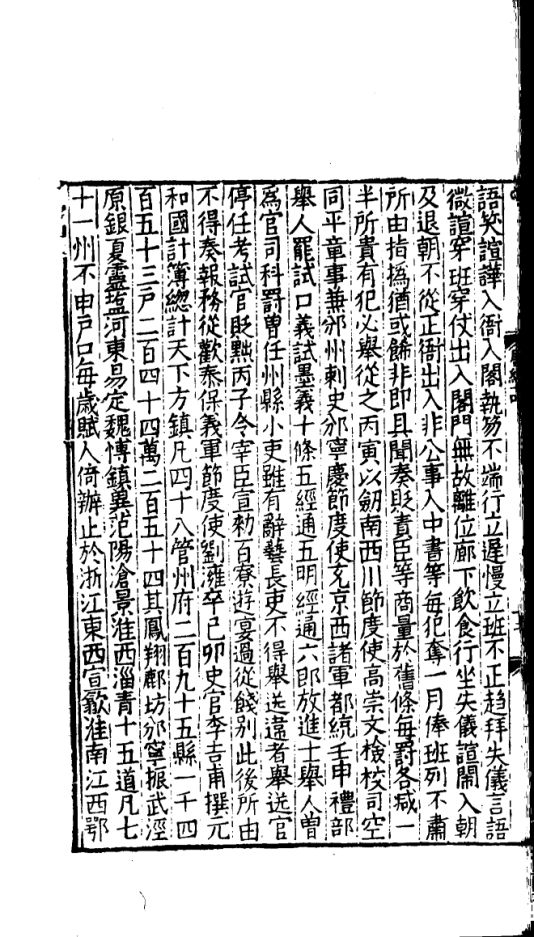 語笑諠譁入衙入閤執笏不端行立遲慢立班不正趨拜失儀言語
微諠穿班穿仗出入閤門無故離位廊下飲食行坐失儀諠鬧入朝
及退朝不從正衙出入非公事入中書等每犯奪一月俸班列不肅
所由指撝猶或飾非即且聞奏貶責臣等商量於舊條每罰各减一
半所貴有犯必舉從之丙寅以劒南西川節度使高崇文檢校司空
同平章事兼邠州刺史邠寧慶節度使充京西諸軍都統壬申禮部
舉人罷試口義試墨義十條五經通五明經通六即放進士舉人曾
爲官司科罰曾任州縣小吏雖有辭藝長吏不得舉送違者舉送官
停任考試官貶黜丙子令宰臣宣勑百寮遊宴過從餞別此後所由
不得奏報務從歡泰保義軍節度使劉雍卒己卯史官李吉甫撰元
和國計簿緫計天下方鎮凡四十八管州府二百九十五縣一千四
百五十三戸二百四十四萬二百五十四其鳳翔鄜坊邠寧振武涇
原銀夏靈塩河東易定魏愽鎮冀范陽滄景淮西淄青十五道凡七
十一州不申戸口每歲賦入倚辦止於浙江東西宣歙淮南江西鄂